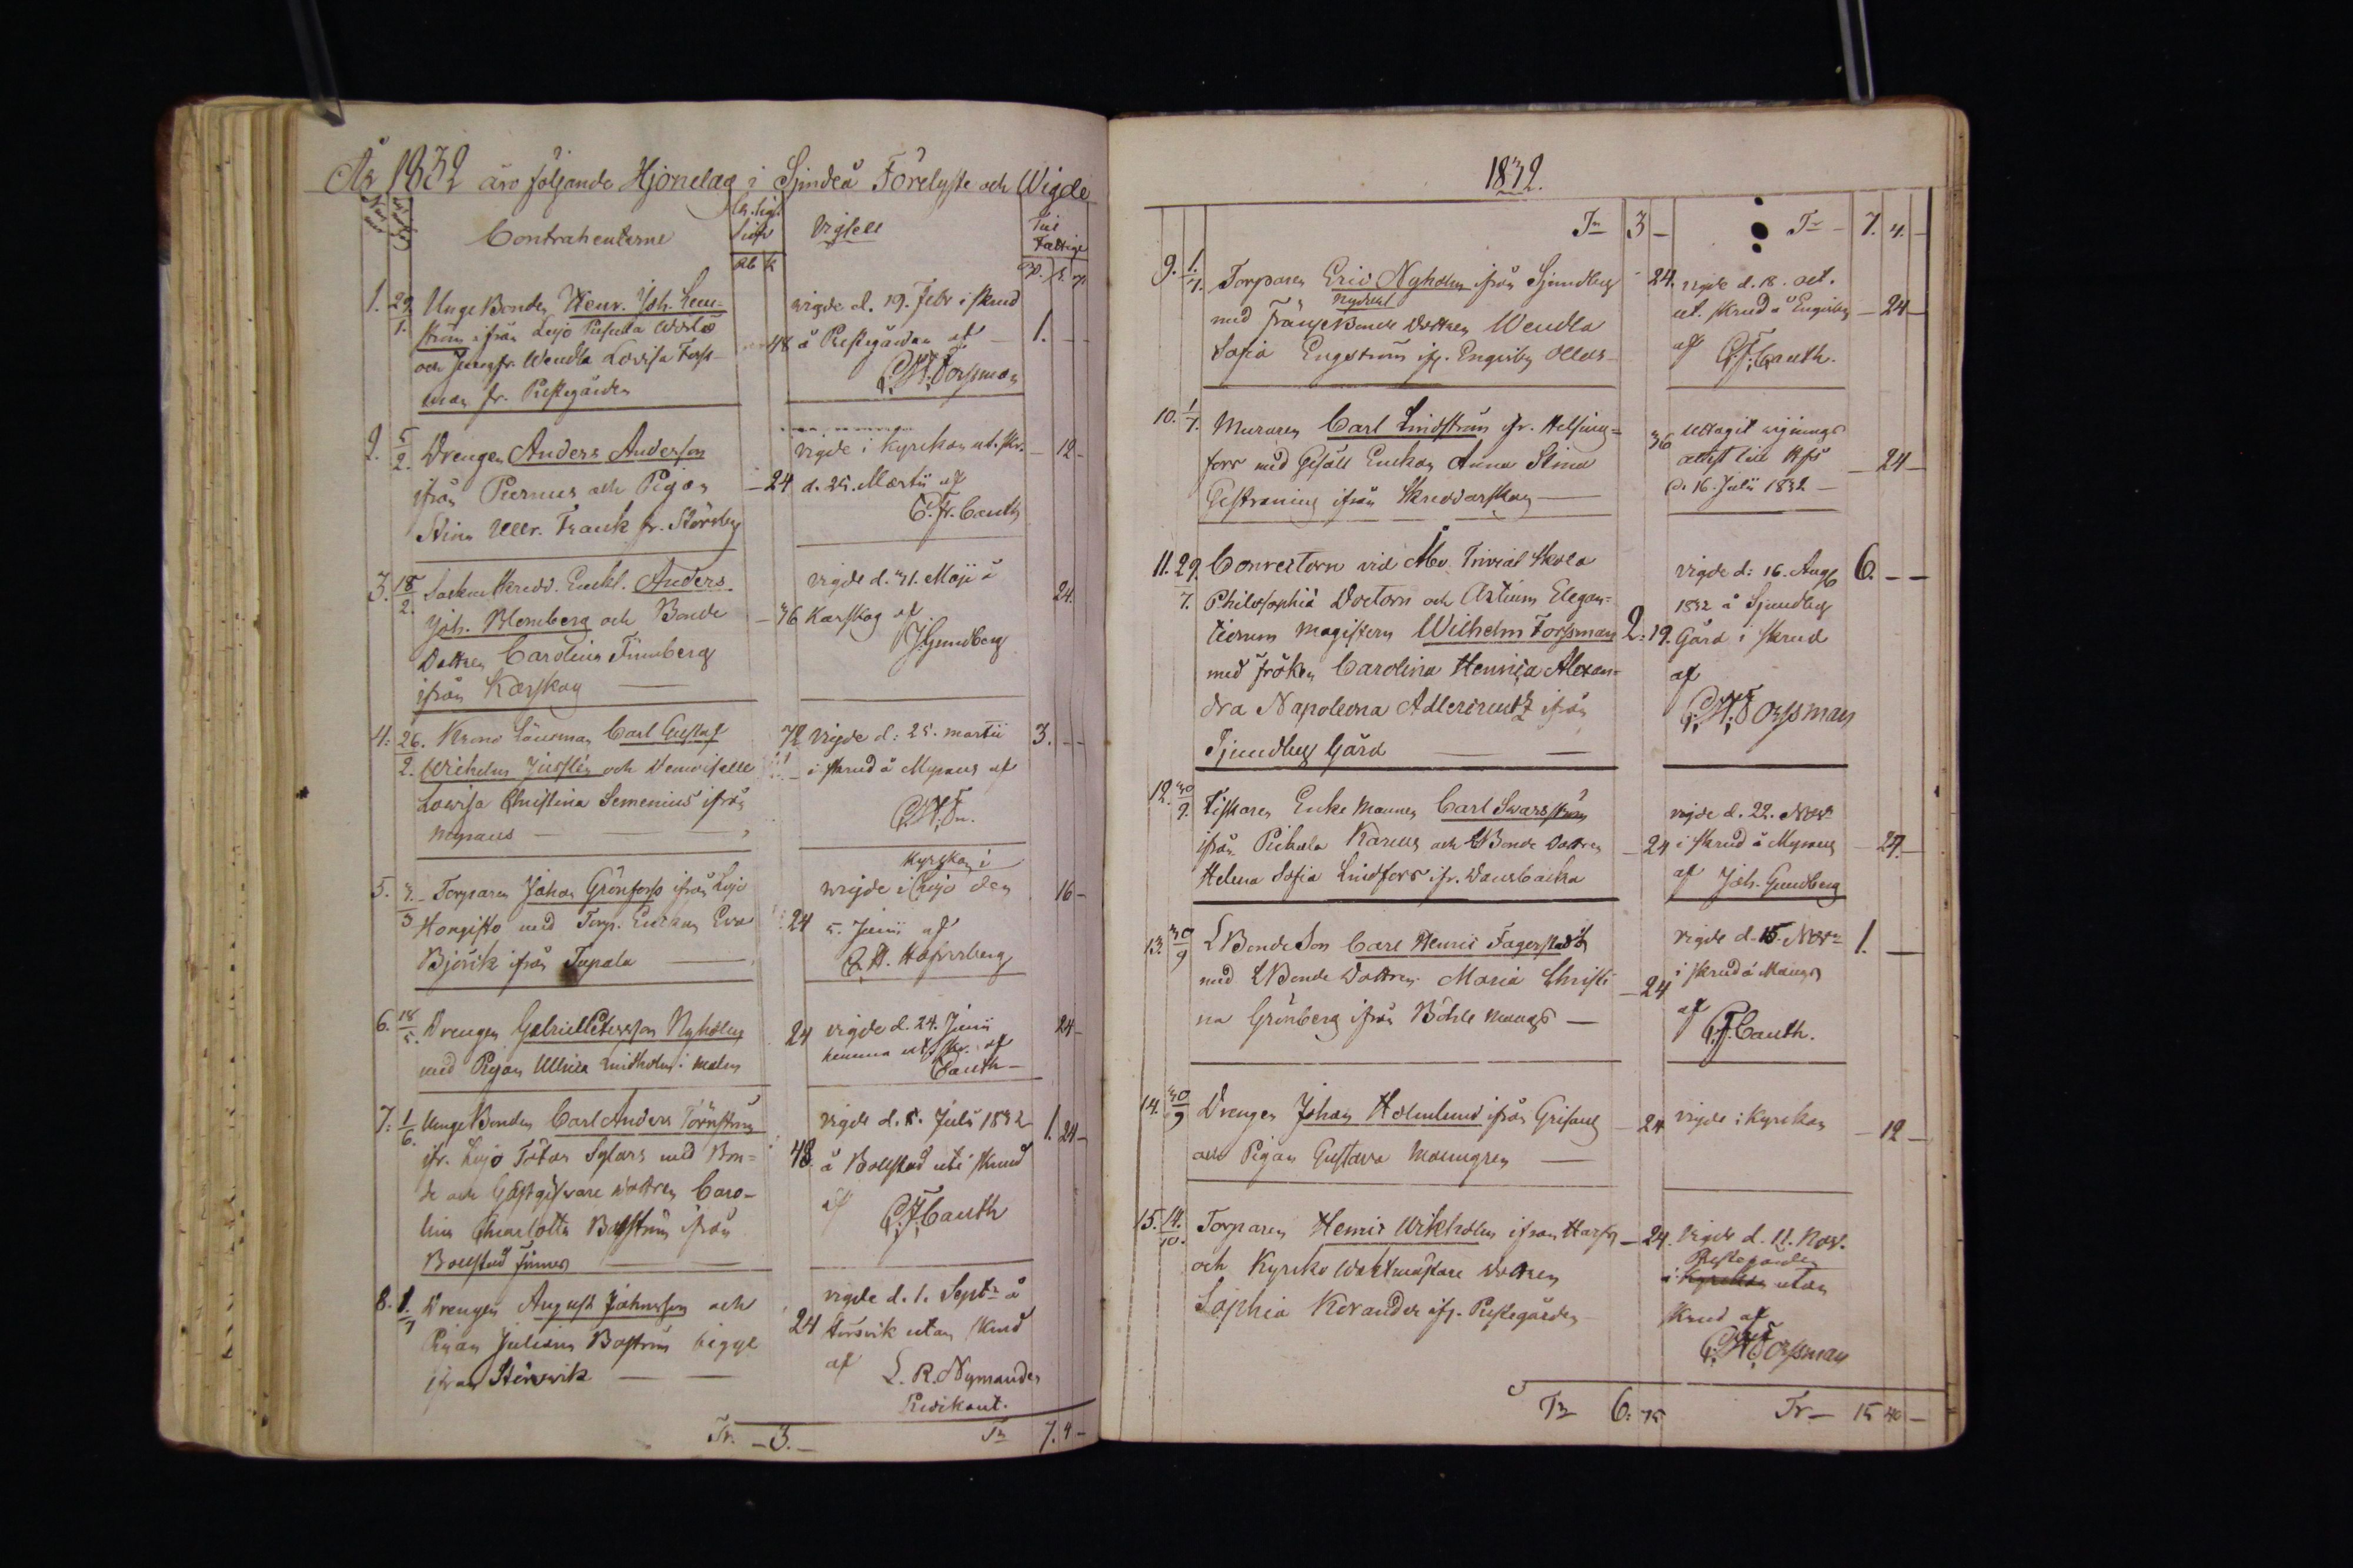 År 1832 äro följande Hjonelag i Sjundeå Förelyste och Wigde
Contrahenterne
Vigsell
Till Fattige
Rb k
1. 29/1. Unge Bonden Henr. Joh. Lem=
ström ifrån Lojo
och Jungfr. Wendla Lovisa Forss-
man fr. Prestegården
48
wigde d. 19. Febr i skrud
å Prestegården af
C. H. Forssman
1. - -
2. 5/2. Drengen Anders Andersson
ifrån Piernus och Pigan
Stina Ullr. Frank fr. Störsby
- 24
vigde i Kyrkan ut. skr.
d. 25. Martii af
C. Fr. Cauth
- 12 -
3. 18/2. Sockne Skredd. Enkl. Anders
Joh. Blomberg och Bonde
Dottren Carolina Finnberg
ifrån Karskog
- 36
vigde d. 31. Maji å
Karskog af
J. Gundberg
24.
4: 26./2. Krono Länsman Carl Gustaf
Wilhelm Juslén och Demoiselle
Lowisa Christina Semenius ifrån
Myrans
72
vigde d: 25. martii
i skrud å Myrans af
C. H. Fn.
3. - -
5. 4/3 Torparen Johan Grönfors ifrån Lojo
Hongisto med Torp. Enkan Eva
Björik ifrån Tupala
24
Kyrkan i
wigde i Lojo den
5. Junii af
16 -
6. 18/5. Drengen Gabriel Petersson Nyholm
med Pigan Ullrica Lindholm i malm
24
vigde d. 24. Junii
hemma ut. skr. af
Cauth -
24 -
7: 1/6. Unge Bonden Carl Anders Törnström
ifr. Lojo Tötar Sylars med Bon=
de och Gästgifvare Dottren Caro-
lina Charlotta Boström ifrån
Bollstad Finnes
48.
vigde d. 5. Juli 1832
å Bollstad uti skrud
af C. F. Cauth
1. 24 -
8. 1./7 Drengen August Johansson och
Pigan Juliana Boström bägge
ifrån Störsvik
24
vigde d. 1. Septr å
Störsvik utan skrud
af L. R. Nymander
Predikant.
Tr. - 3. -
Tr 7. 4 -
1832.
Tr 3 -
Tr - 7. 4. -
9. 1./7. Torparen Eric Nyholm ifrån Sjundby
med Frälse Bonde Dottren Wendla
Sofia Engström ifr. Engisby Ollas
24.
vigde d. 18. oct.
ut. skrud å Engisby
af C. F. Cauth.
- 24 -
10. 1/7. Muraren Carl Lindström ifr. Helsing=
fors med Gesäll Enkan Anna Stina
ifrån Skreddarskog
36
Uttagit vignings
attest till Hfs
d. 16. Julii 1832 -
- 24 -
11. 29./7. Conrectorn vid Åbo Trivial Skola
Philosophiæ Doctorn och Artium Elegan=
tiorum Magistern Wilhelm Forssman
med Fröken Carolina Henrica Alexan=
dra Napoleona Adlercreutz ifrån
Sjundby Gård
2: 19.
vigde d: 16. Aug
1832 å Sjundby
Gård i skrud
af
C. H. Forssman
6. - -
12. 30/9. Fiskaren Enke Mannen Carl Svartström
ifrån Pickala Karens och Bonde Dottren
Helena Sofia Lindfors ifr. Dansbacka
- 24
vigde d. 22. Novr
i skrud å Myrans
af Joh. Gundberg
- 24. -
13. 30/9 L Bonde Son Carl Henric Fagerstedt
med L Bonde Dottren Maria Christi
na Grönberg ifrån Böhle Maugs -
- 24
vigde d. 15. Novr
i skrud å Maugs
af
C. F. Cauth.
1. -
14. 30/9 Drengen Johan Holmlund ifrån Grisans
och Pigan Gustava Malmgren
- 24
vigde i Kyrckan
- 12 -
15. 14./10. Torparen Henric Wikholm ifrån Harfs
och Kyrcko Waktmästare Dottren
Sophia Korander ifr. Prestegården
- 24.
vigde d. 11. Nov.
Prestegården
i Kyrckan utan
skrud af
C. H. Forssman
Tr 6: 75
Tr - 15 40 -